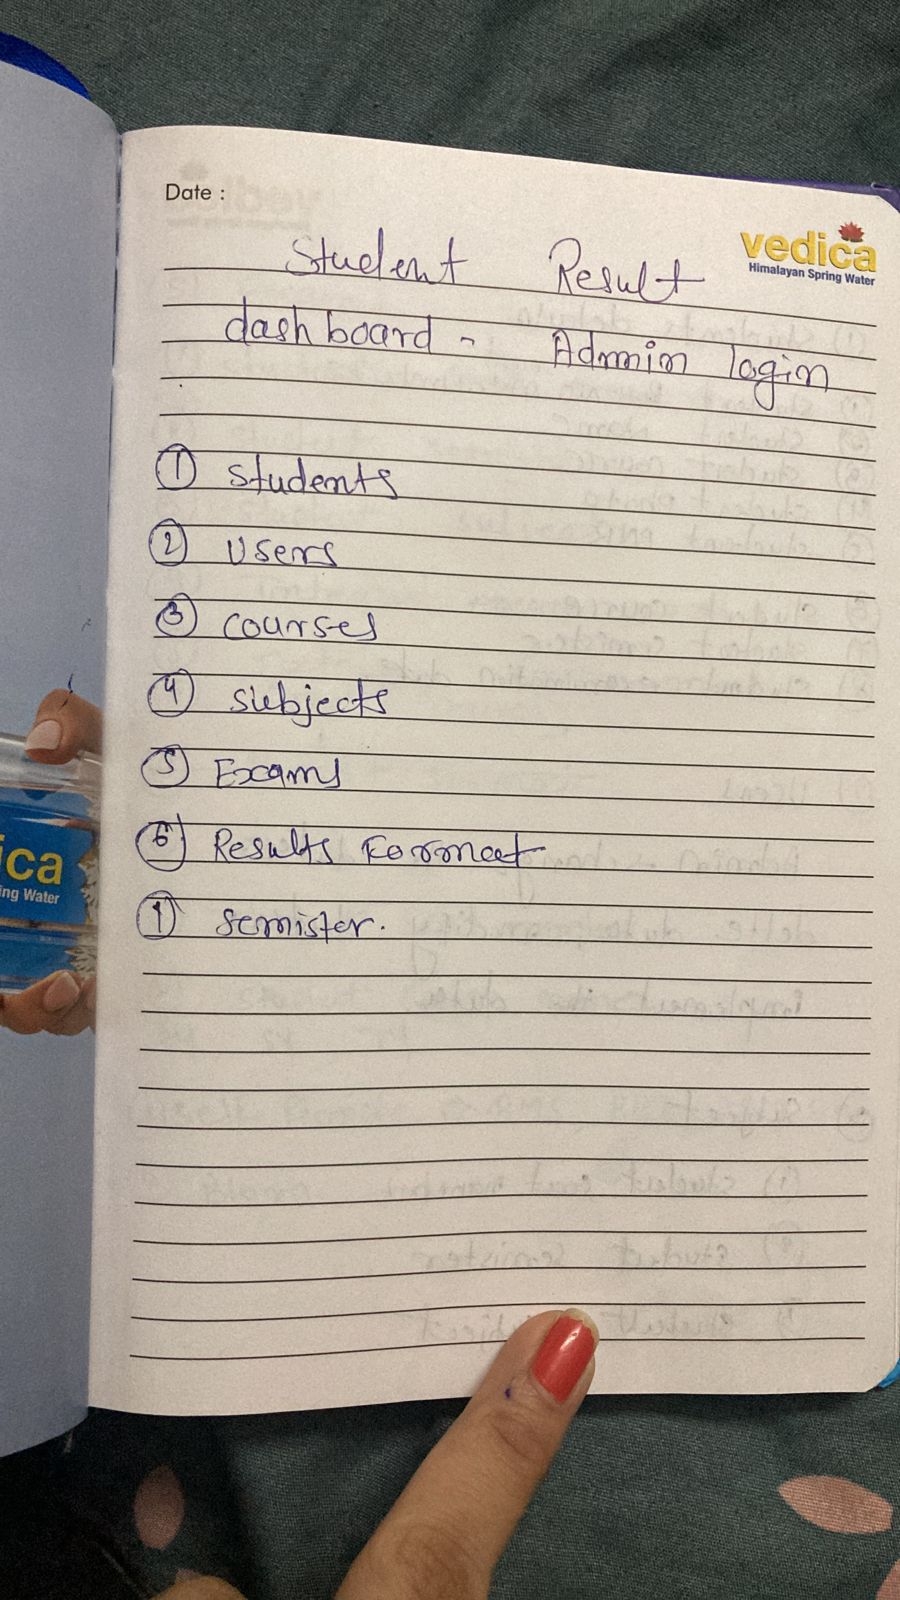 Date :
vedica
Himalayan Spring Water
Student Result
dashboard - Admin login
① Students
② Users
③ courses
④ subjects
⑤ Exams
⑥ Results Format
① semister.
ica
ing Water